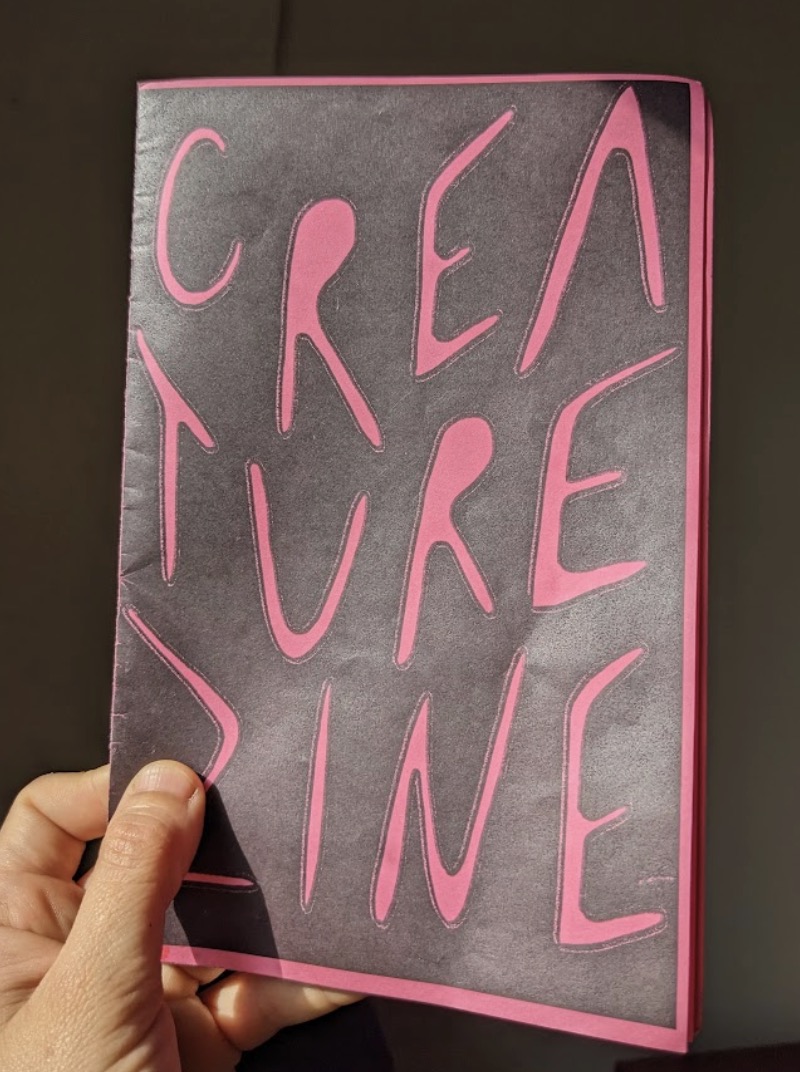 CREA
TURE
ZINE